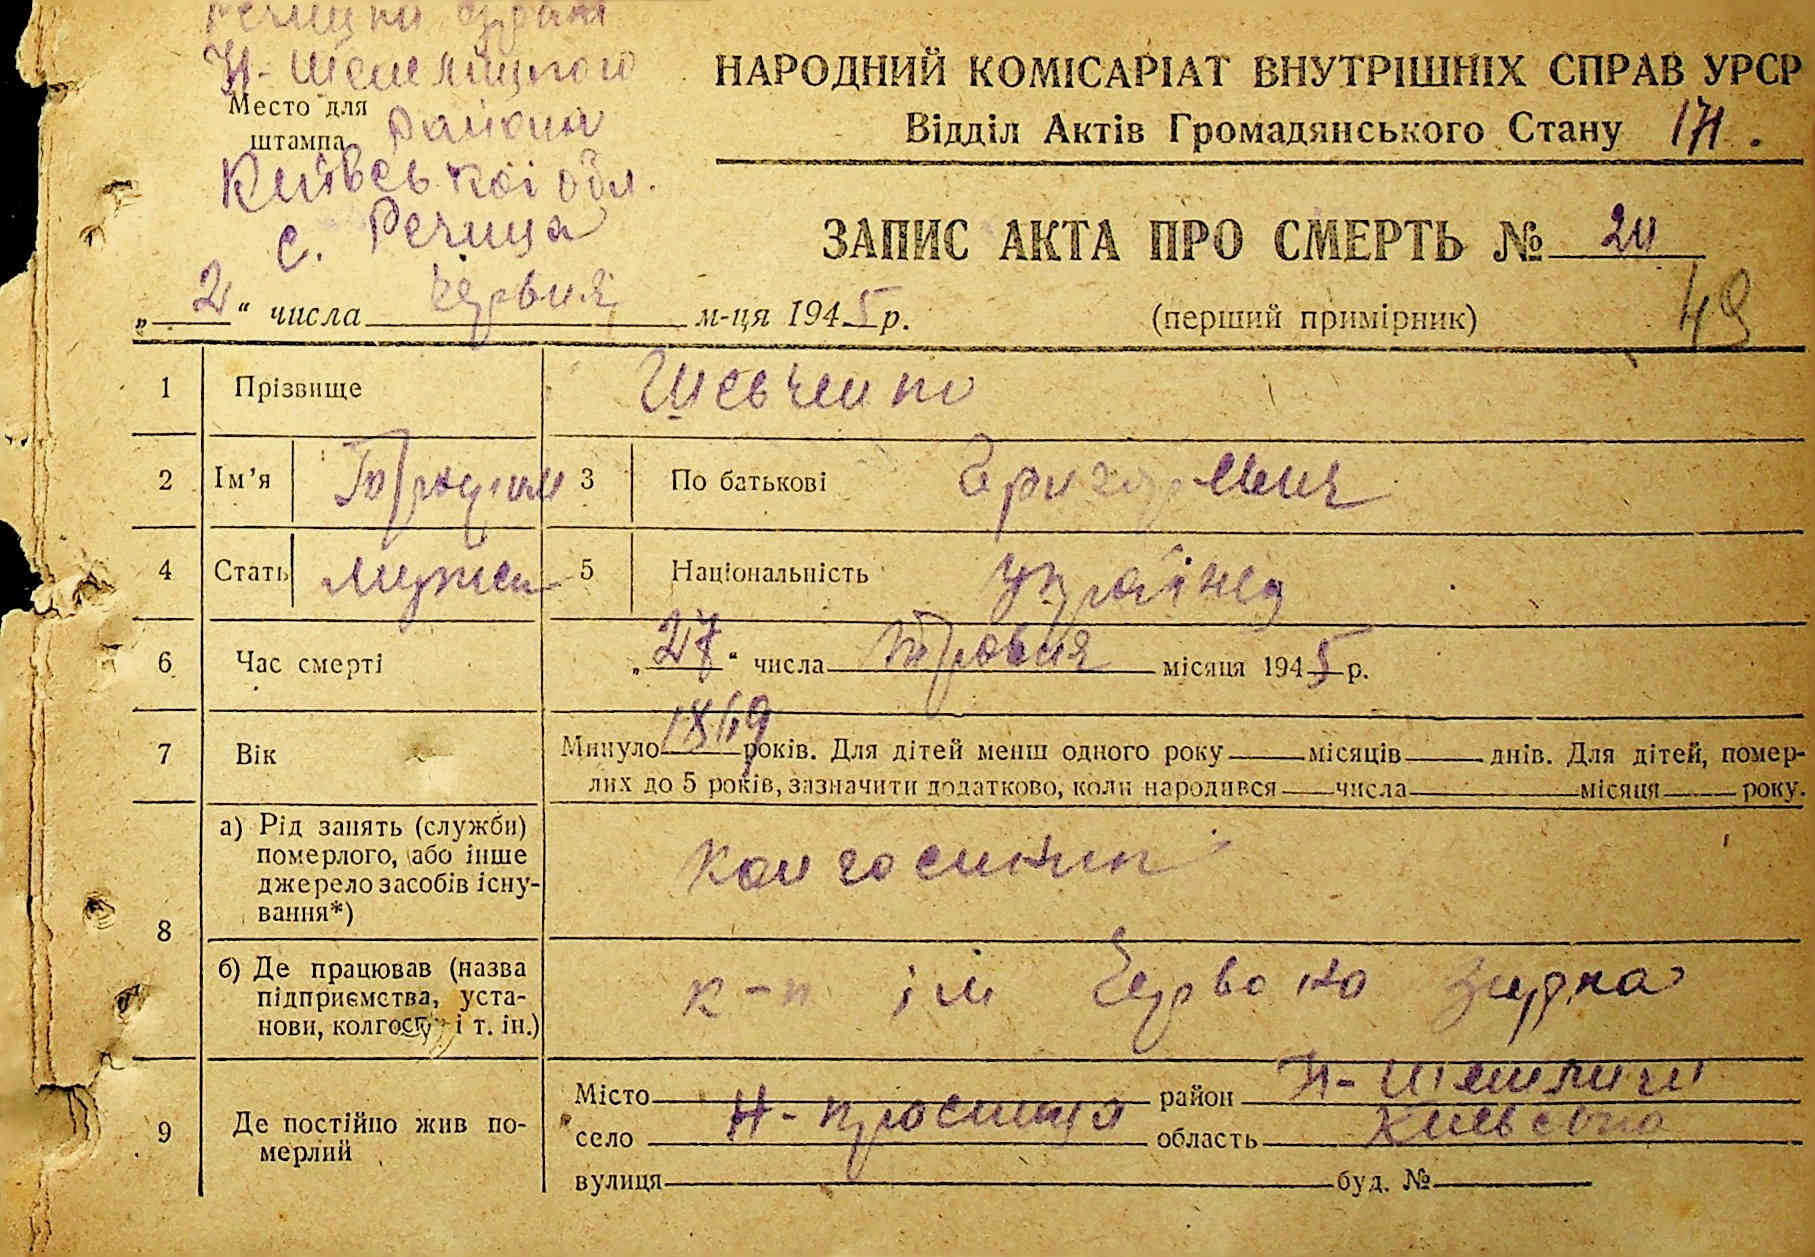 Н-Шепелицкого
Место для
штампа
района
Київської обл.
с. Речица
НАРОДНИЙ КОМІСАРІАТ ВНУТРІШНІХ СПРАВ УРСР
Відділ Актів Громадянського Стану 171.
ЗАПИС АКТА ПРО СМЕРТЬ №
„2“ числа червня м-ця 1945 р.
(перший примірник)
49
1 Прізвище Шевченко
2 Ім’я 3 По батькові
4 Стать мужск 5 Національність українец
6 Час смерті „27“ числа травня місяця 1945 р.
7 Вік Минуло 1869 років. Для дітей менш одного року місяців днів. Для дітей, помер-
лих до 5 років, зазначити додатково, коли народився числа місяця року.
8 а) Рід занять (служби)
померлого, або інше
джерело засобів існу-
вання*)
колгоспник
б) Де працював (назва
підприємства, уста-
нови, колгоспу і т. ін.)
к-п ім Червоно зирка
9 Де постійно жив по-
мерлий
Місто район Н-Шепеличі
село Н-Красниця область Київська
вулиця буд. №